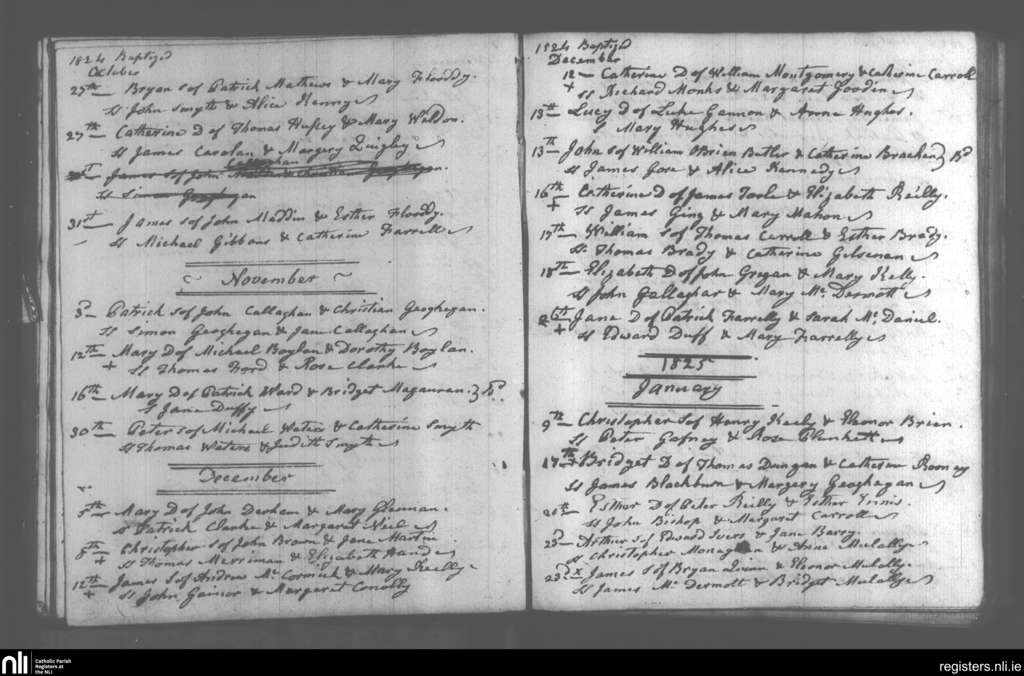 1824 Baptized
October
25th Bryan S of Patrick Mathews & Mary Flooddy.
Ss John Smyth & Alice Kenny
27th Catherine D of Thomas Husley & Mary Waldon.
Ss James Carolan & Margery Quigley
Callaghan
James S of John
Ss Simon Geoghegan
31st James S of John Maddin & Esther Floody.
Ss Michael Gibbons & Catherine Farrell
November
3d Patrick S of John Callaghan & Christian Geoghegan.
Ss Simon Geoghegan & Jane Callaghan
12th Mary D of Michael Boylan & Dorothy Boylan.
+ Ss Thomas Ford & Rose Clarke
16th Mary D of Patrick Ward & Bridget Magauran.
S Jane Duffy
30th Peter S of Michael Waters & Catherine Smyth
Ss Thomas Waters & Judith Smyth
December
5th Mary D of John Derham & Mary Glennan.
Ss Patrick Clarke & Margaret Neil
8th Christopher S of John Brown & Jane Martin
+ Ss Thomas Merriman & Elizabeth Hand
12th James S of Andrew Mc Cormick & Mary Reilly
+ Ss John Gainor & Margaret Conolly
1824 Baptized
December
12 Catherine D of William Montgomery & Catherine Carroll
+ Ss Richard Monks & Margaret Goodin
13th Lucy D of Luke Gannon & Anne Hughes.
S Mary Hughes
13th John S of William OBrien Butler & Catherine Bracken
Ss James Gore & Alice Kennedy
16th Catherine D of James Toole & Elizabeth Reilly.
+ Ss James Ging & Mary Mahon
17th William S of Thomas Carroll & Esther Brady.
Ss Thomas Brady & Catherine Gilsenan
18th Elizabeth D of John Gregan & Mary Kelly.
Ss John Gallaghar & Mary Mc Dermott
21st Jane D of Patrick Farrelly & Sarah Mc Daniel.
+ Ss Edward Duff & Mary Farrelly
1825
January
9th Christopher S of Henry Keely & Eleonor Brien.
Ss Peter Gafney & Rose Plunkett
17th Bridget D of Thomas Dungan & Catherine Rooney
Ss James Blackburn & Margery Geoghegan
21th Esther D of Peter Reilly & Esther
Ss John Bishop & Margaret Carroll
23d Arthur S of Edward Ivers & Jane Barry
Ss Christopher & Anne Mulally
23d x James S of Bryan Quinn & Eleonor Mulally.
Ss James Mc Dermott & Bridget Mulally
nli
Catholic Parish
Registers at
the NLI
registers.nli.ie